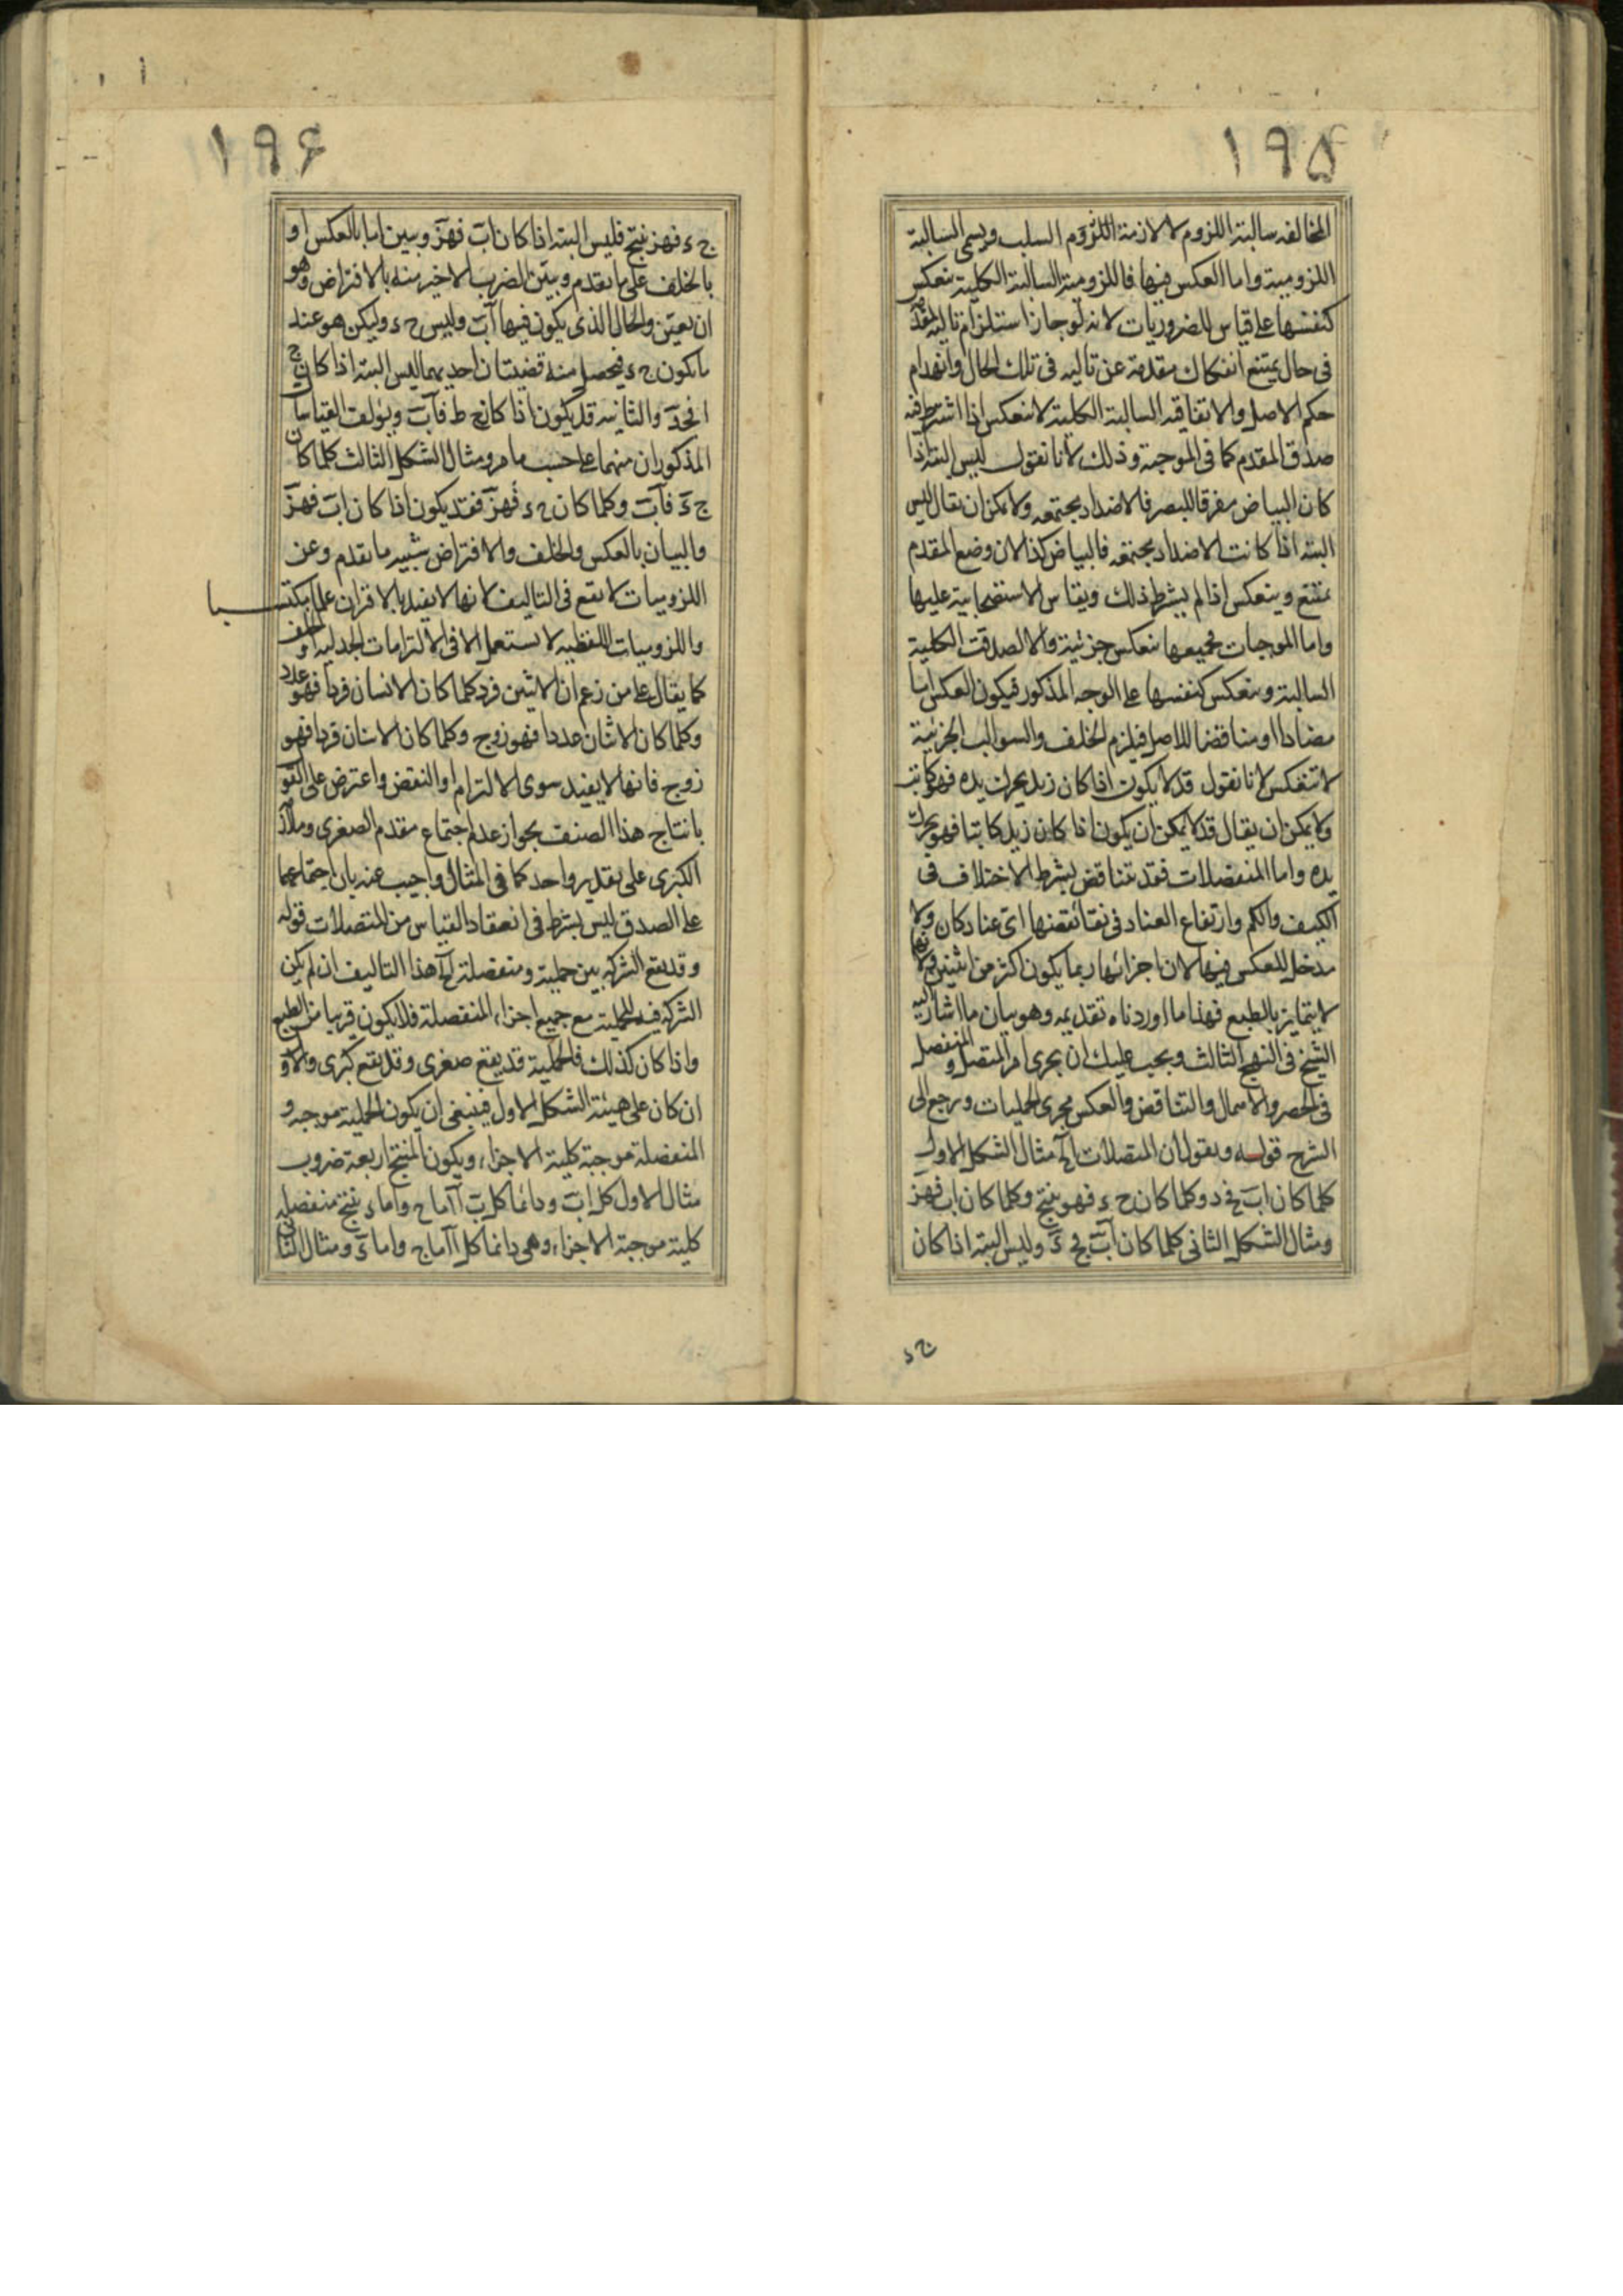 ۱۹۵
المخالفه سالبة اللزوم لا لازمة اللزوم السلب ويسمى السالبة
اللزومية واما العكس فيها فاللزومية السالبة الكلية ينعكس
كنفسها على قياس الضروريات لانه لو جاز استلزام تاليه لمقدمه
فى حال يمتنع انفكاك مقدمة عن تاليه فى تلك الحال وانهدام
حكم الاصل والاتفاقيه السالبة الكلية لا ينعكس اذا اشترط فيه
صدق المقدم كما فى الموجبة وذلك لانا نقول ليس البتة اذا
كان البياض مفرقا للبصر فالاضداد مجتمعه ولا يمكن ان يقال ليس
البته اذا كانت الاضداد مجتمعه فالبياض كذا لان وضع المقدم
ممتنع وينعكس اذا لم يشترط ذلك ويقاس الاستصحابية عليها
واما الموجبات فجميعها ينعكس جزئية والا لصدقت الكلية
السالبة وينعكس كنفسها على الوجه المذكور فيكون العكس اما
مضادا او مناقضا للاصل فيلزم الخلف والسوالب الجزئية
لا تنعكس لانا نقول قد لا يكون اذا كان زيد يحرك يده فهو كاتب
ولا يمكن ان يقال قد لا يمكن ان يكون اذا كان زيد كاتبا فهو يحرك
يده واما المنفصلات فقد تتناقض بشرط الاختلاف فى
الكيف والكم وارتفاع العناد فى نقائضها اى عناد كان ولا
مدخل للعكس فيها لان اجزائها ربما يكون اكثر من اثنين ولانها
لا يتمايز بالطبع فهذا ما اوردناه تقديمه وهو بيان ما اشار اليه
الشيخ فى النهج الثالث ويجب عليك ان يجرى امر المتصل والمنفصل
فى الحصر والاهمال والتناقض والعكس مجرى الحمليات ونرجع الى
الشرح قوله ويقول ان المتصلات الخ مثال الشكل الاول
كلما كان اب فج د وكلما كان ج د فهو ينتج وكلما كان اب فهز
ومثال الشكل الثانى كلما كان اب فج د وليس البتة اذا كان
ج د
۱۹۶
ج د فهز ينتج فليس البتة اذا كان اب فهز ويبين اما بالعكس او
بالخلف على ما تقدم ويبين الضرب الاخير منه بالافتراض وهو
ان يعين الحال الذى يكون فيها اب وليس ج د وليكن هو عند
ما يكون ح ط فيحصل منه قضيتان احديهما ليس البتة اذا كان ح
ط فج د والثانيه قد يكون اذا كان ح ط فاب ويؤلف القياسا
المذكوران منهما على حسب ما مر ومثال الشكل الثالث كلما كان
ج د فاب وكلما كان ج د فهز فقد يكون اذا كان اب فهز
والبيان بالعكس والخلف والافتراض شبيه ما تقدم وعن
اللزوميات لا تقع فى التاليف لانها لا يفيد بالاقتران علما مكتسبا
واللزوميات اللفظيه لا يستعمل الا فى الالتزامات الجدليه او الخلف
كما يقال على من زعم ان الاثنين فرد كلما كان الاثنان فردا فهو عدد
وكلما كان الاثنان عددا فهو زوج وكلما كان الاثنان فردا فهو
زوج فانها لا يفيد سوى الالتزام او النقض واعترض على القو
بانتاج هذا الصنف بجواز عدم اجتماع مقدم الصغرى وملازمة
الكبرى على تقدير واحد كما فى المثال واجيب عنه بان اجتماعهما
على الصدق ليس بشرط فى انعقاد القياس من المتصلات قوله
وقد يقع الشركة بين حملية ومنفصلة الخ هذا التاليف ان لم يكن
الشركة فيه للحملية مع جميع اجزاء المنفصلة فلا يكون قريبا من الطبع
واذا كان كذلك فالحملية قد يقع صغرى وقد يقع كبرى والاول
ان كان على هيئة الشكل الاول فينبغى ان يكون الحملية موجبه و
المنفصلة موجبة كلية الاجزاء ويكون المنتج اربعة ضروب
مثال الاول كل اب ودائما كل ب اما ج واما د ينتج منفصله
كلية موجبة الاجزاء وهى دائما كل ا اما ج واما د ومثال الثانى